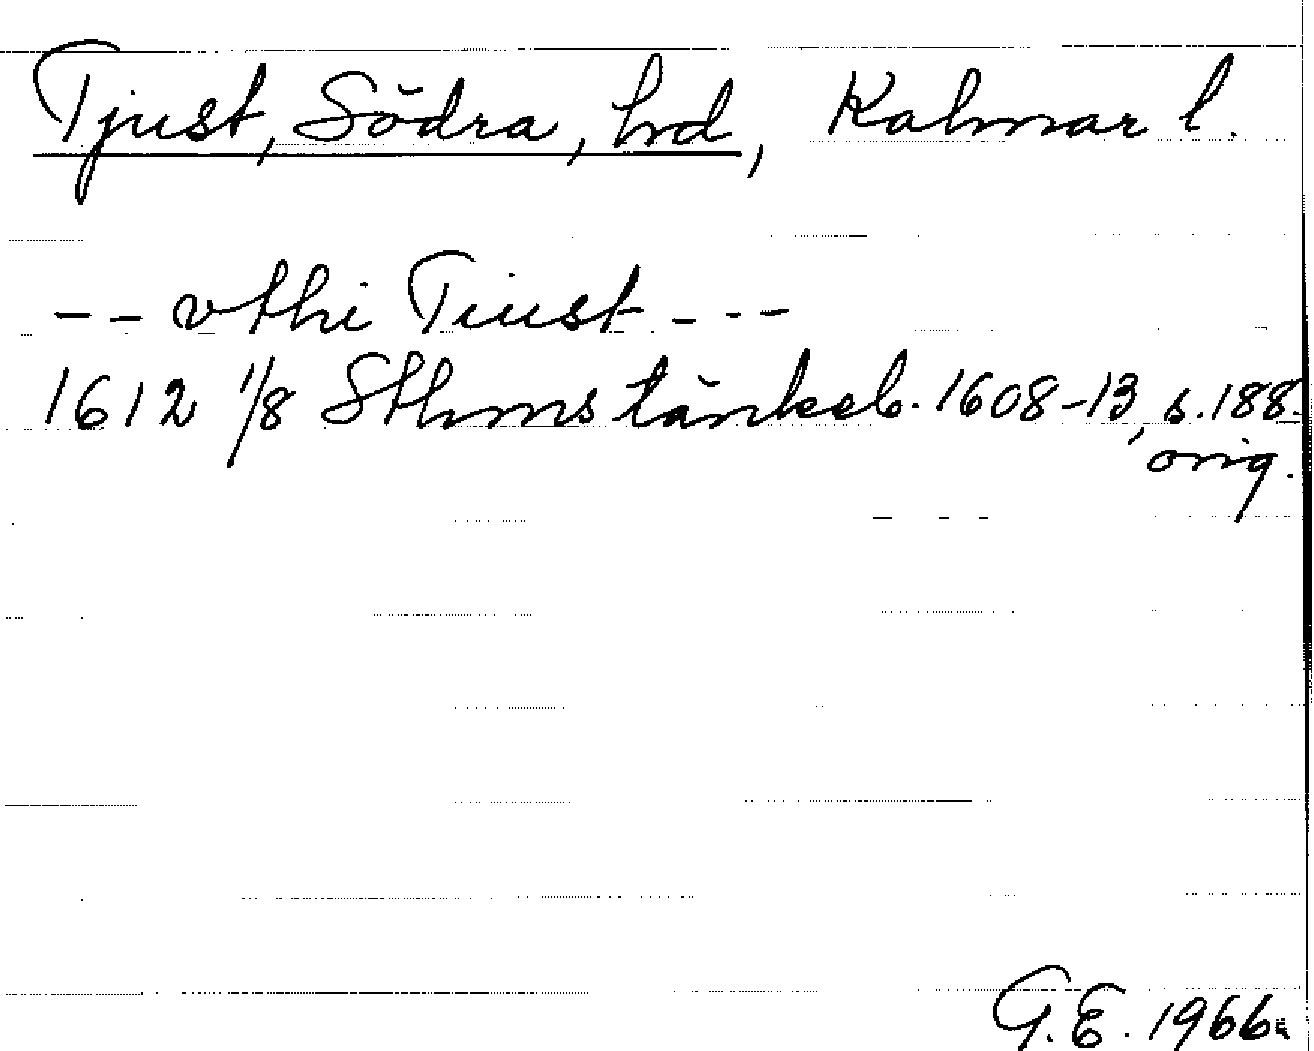 Tjust, Södra, hrd, Kalmar l.
-- vthi Tiust ---
1612 1/8 Sthms tänkeb. 1608-13, s. 188.
orig.
G.E. 1966.